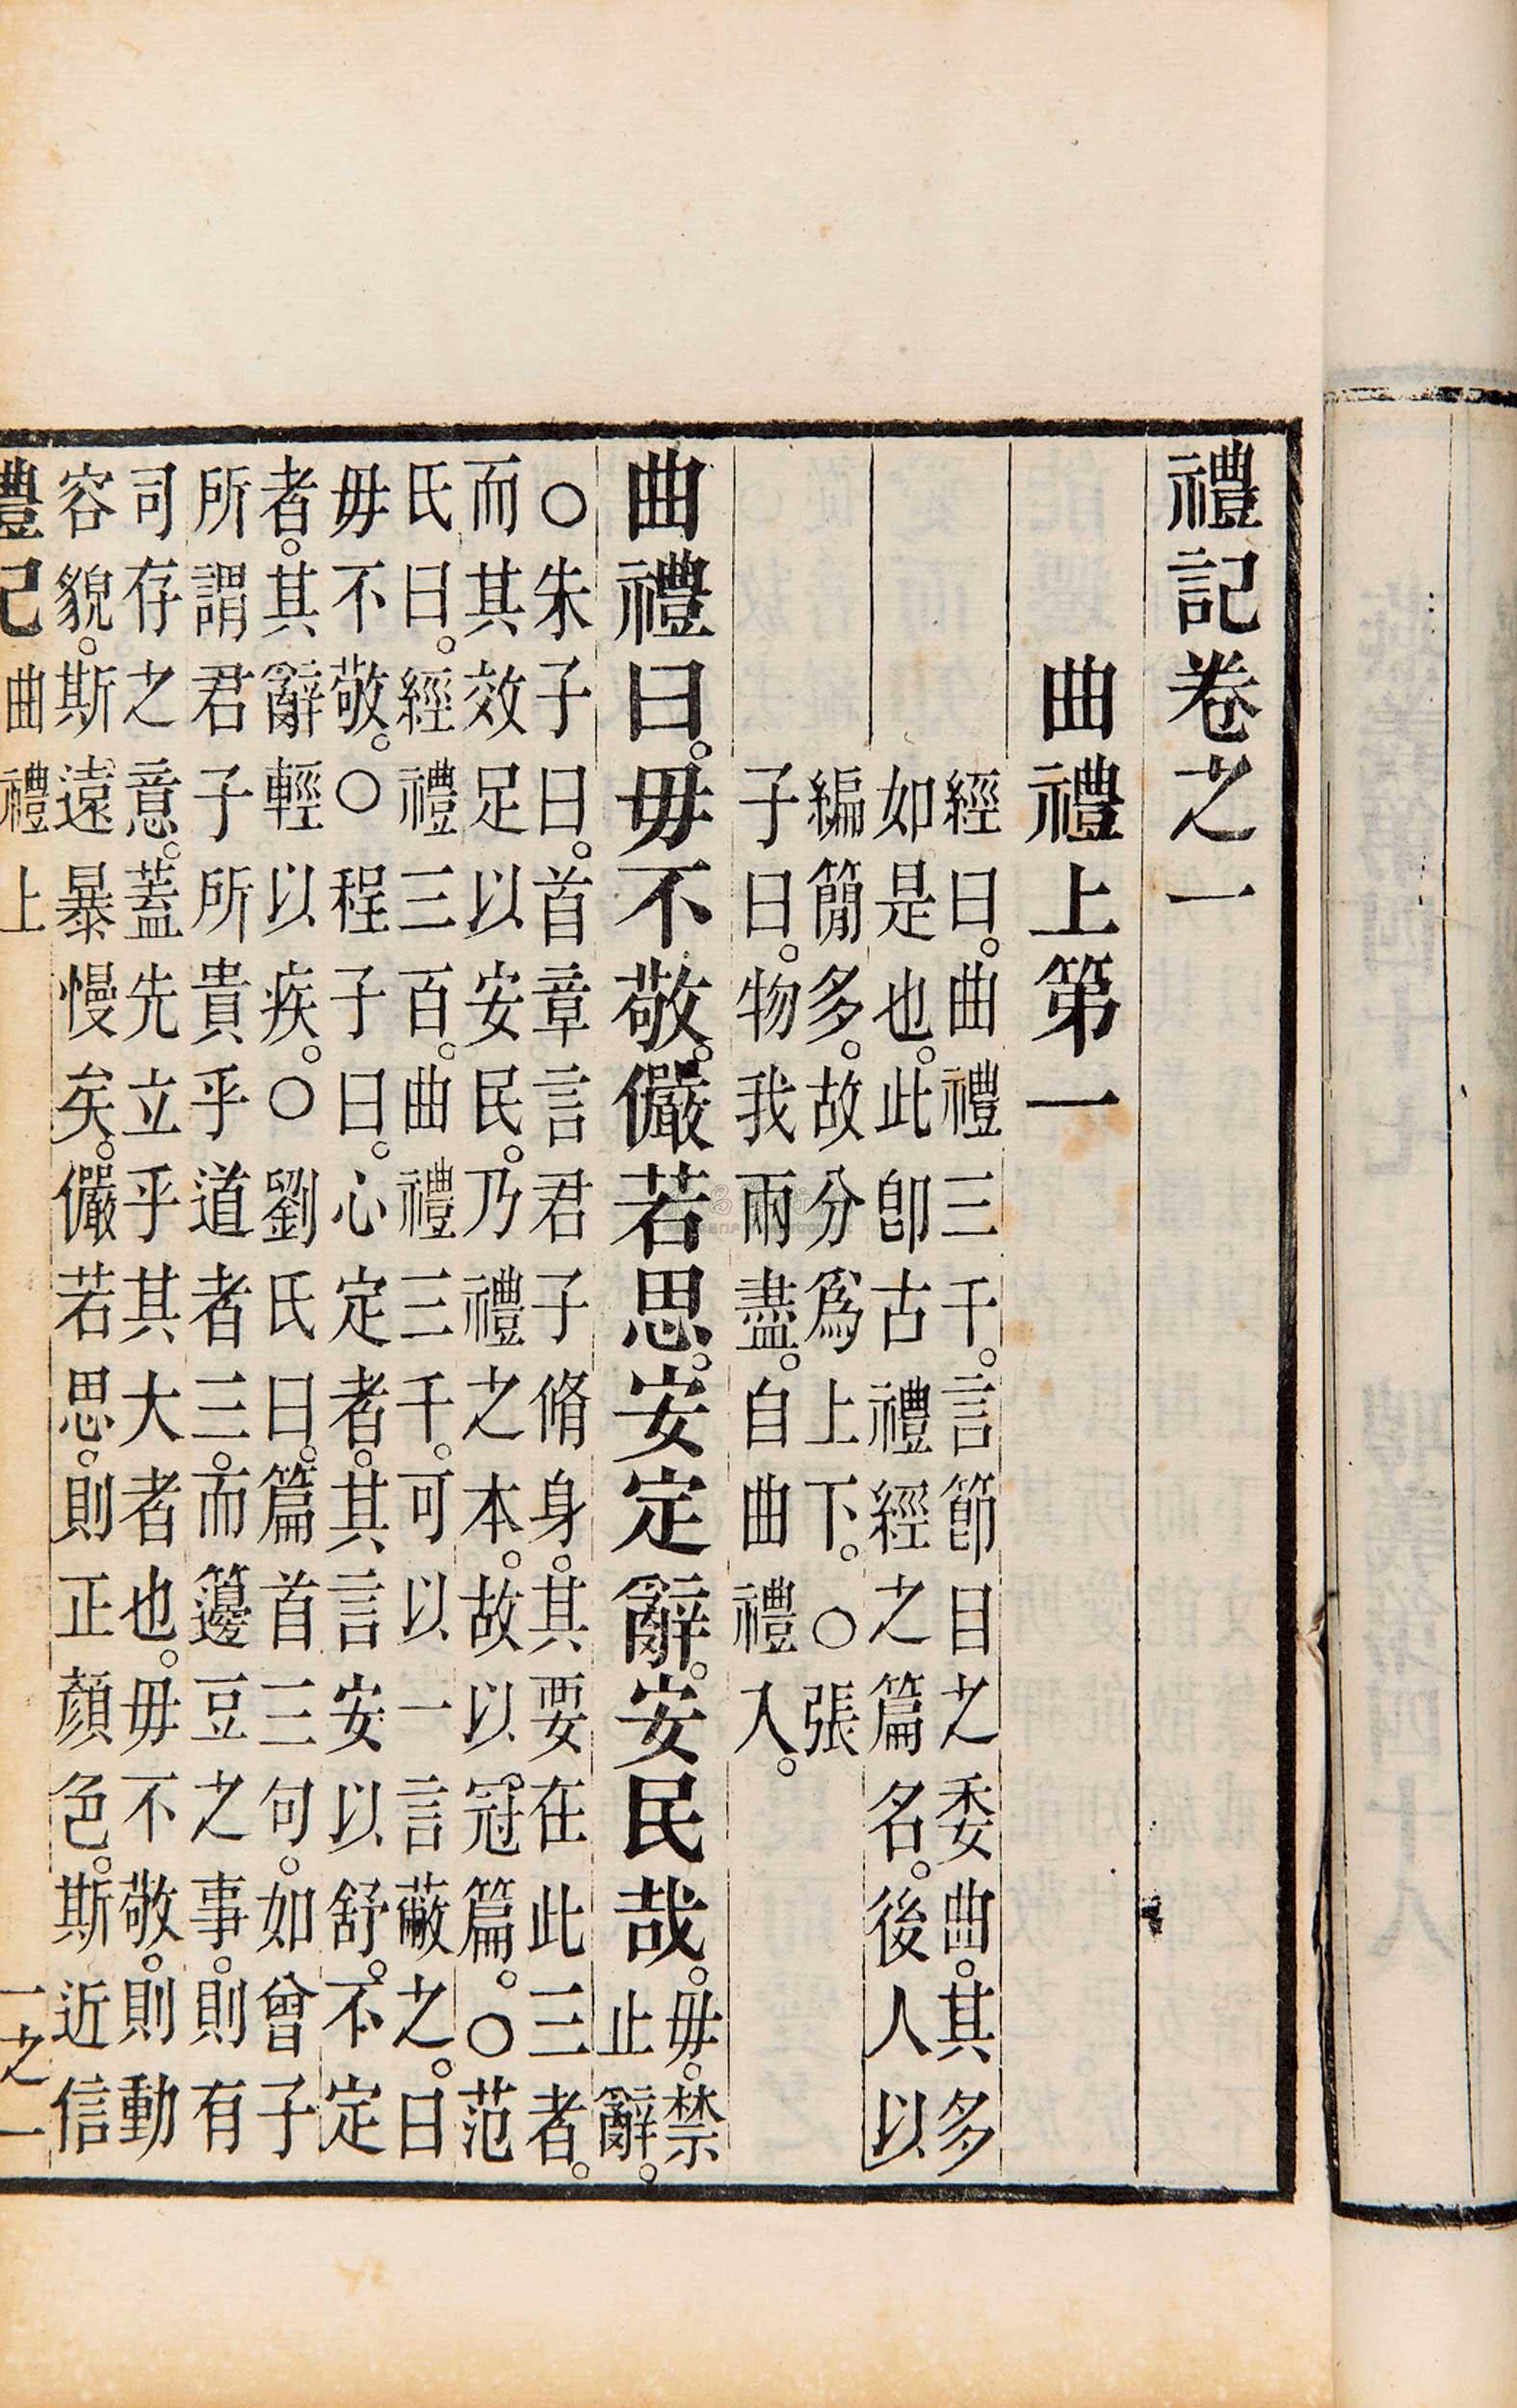 禮記卷之一
曲禮上第一
經曰。曲禮三千。言節目之委曲。其多
如是也。此卽古禮經之篇名。後人以
編簡多。故分爲上下。○張
子曰。物我兩盡。自曲禮入。
曲禮曰。毋不敬。儼若思。安定辭。安民哉。
毋。禁
止辭。
○朱子曰。首章言君子脩身。其要在此三者。
而其效足以安民。乃禮之本。故以冠篇。○范
氏曰。經禮三百。曲禮三千。可以一言蔽之。曰
毋不敬。○程子曰。心定者。其言安以舒。不定
者。其辭輕以疾。○劉氏曰。篇首三句。如曾子
所謂君子所貴乎道者三。而籩豆之事。則有
司存之意。蓋先立乎其大者也。毋不敬。則動
容貌。斯遠暴慢矣。儼若思。則正顏色。斯近信
禮記 曲禮上 一之一